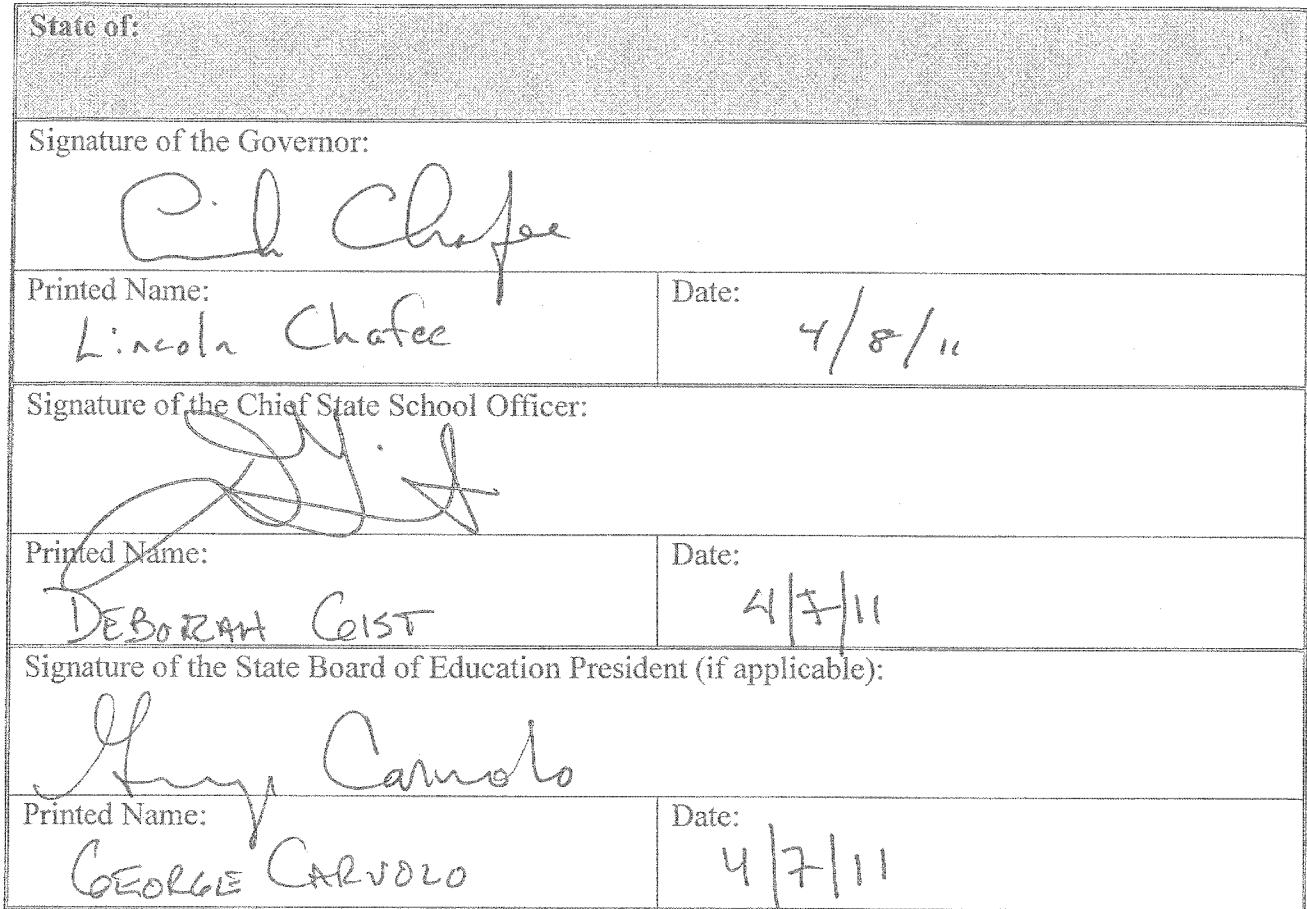 State of:
Signature of the Governor:
Chafee
Printed Name:
Date:
Lincoln Chafee
4/8/11
Signature of the Chief State School Officer:
Printed Name:
Date:
DEBORAH GIST
4/7/11
Signature of the State Board of Education President (if applicable):
Carvolo
Printed Name:
Date:
GEORGE CARVOLO
4/7/11